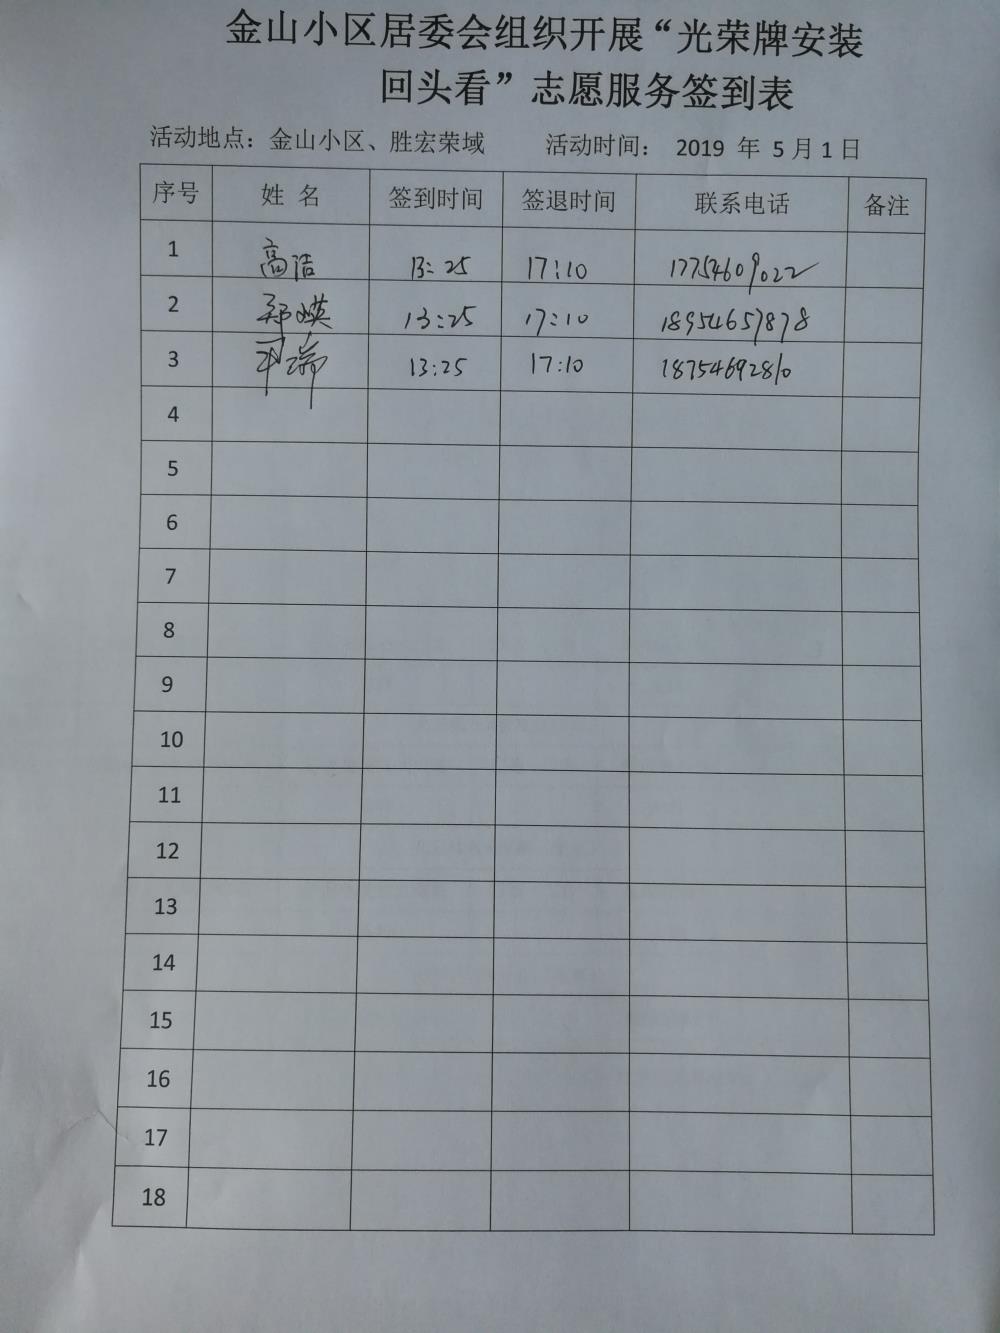 金山小区居委会组织开展“光荣牌安装
回头看”志愿服务签到表
活动地点：金山小区、胜宏荣域 活动时间： 2019 年 5 月 1 日
序号 姓 名 签到时间 签退时间 联系电话 备注
1 高洁 13:25 17:10 17754609022
2 郑媖 13:25 17:10 18954657878
3 13:25 17:10 18754692810
4
5
6
7
8
9
10
11
12
13
14
15
16
17
18